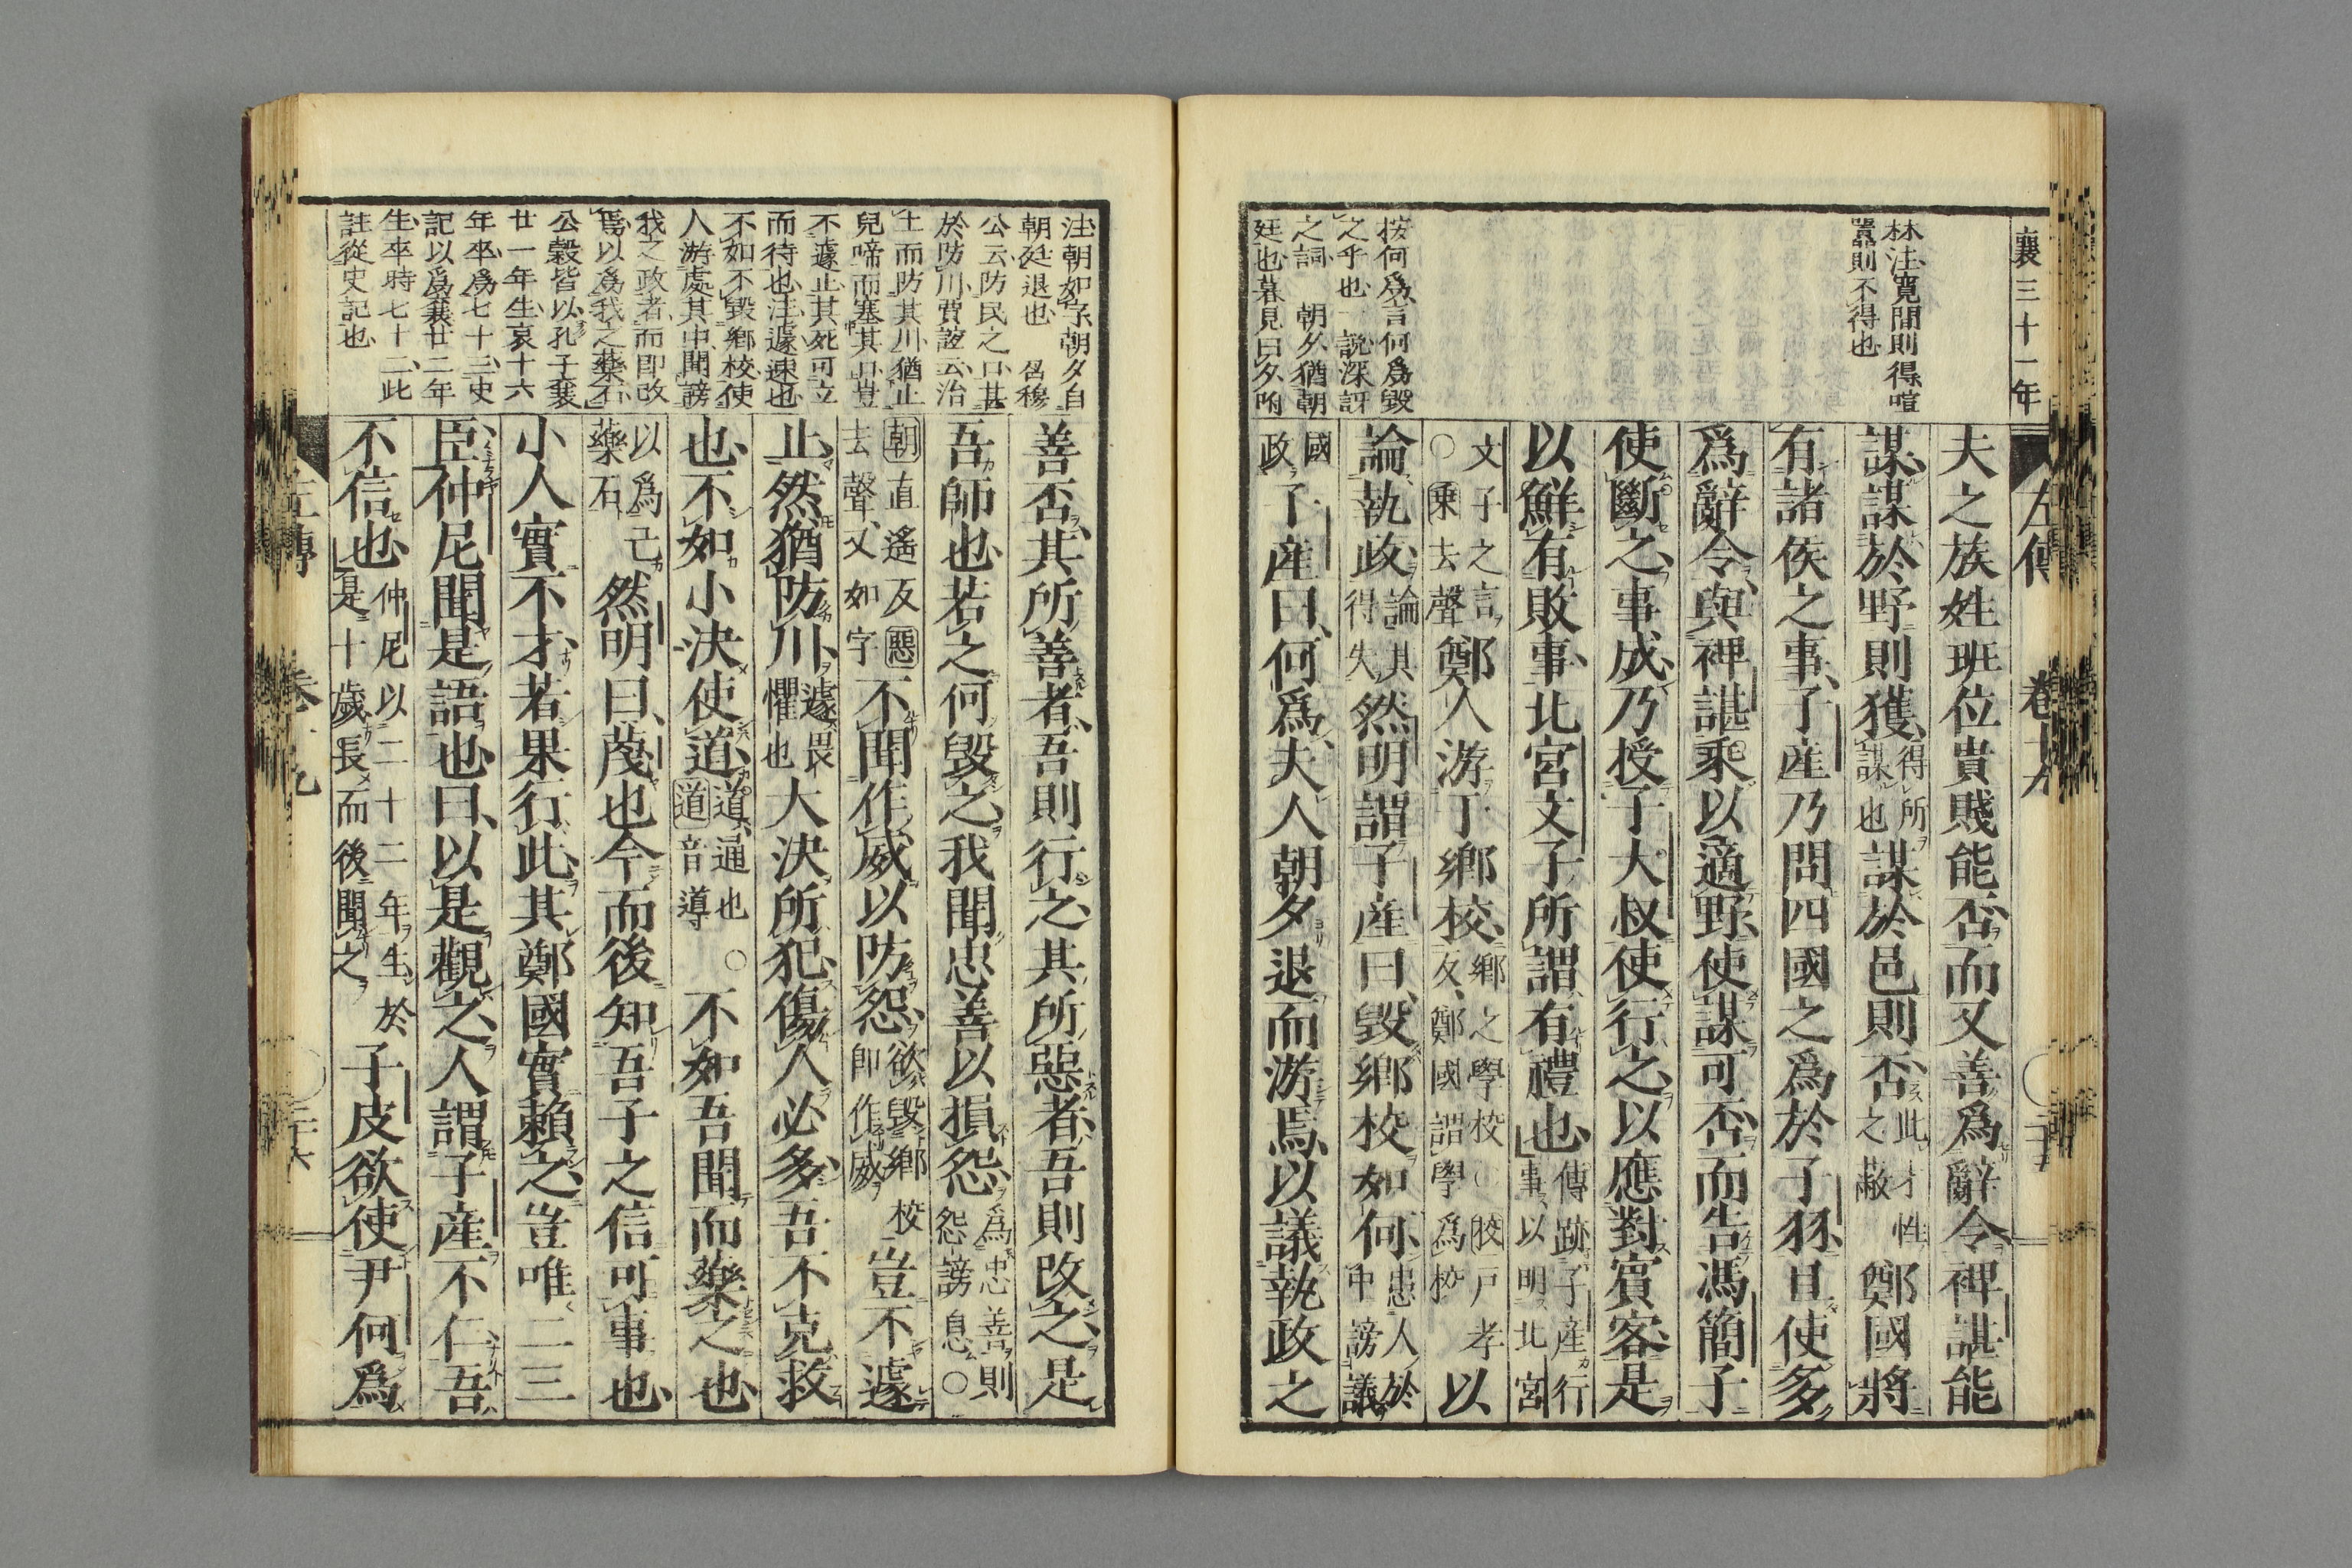 襄三十一年
左傳 卷十九 二十五
林注寬閒則得喧
囂則不得也
按何爲言何爲毀
之乎也 說深訝
之詞 朝夕猶朝
廷也暮見曰夕附
夫之族姓班位貴賤能否而又善爲辭令裨諶能
謀謀於野則獲得所謀也謀於邑則否此才性之蔽鄭國將
有諸侯之事子產乃問四國之爲於子羽且使多
爲辭令與裨諶乘以適野使謀可否而告馮簡子
使斷之事成乃授子大叔使行之以應對賓客是
以鮮有敗事北宮文子所謂有禮也傳跡子產行事以明北宮
文子之言○乘去聲鄭人游于鄉校鄉之學校○校戶孝反鄭國謂學爲校以
論執政論其得失然明謂子產曰毀鄉校如何患人於中謗議
國政子產曰何爲夫人朝夕退而游焉以議執政之
注朝如字朝夕自
朝廷退也 召穆
公云防民之口甚
於防川賈誼云治
土而防其川猶止
兒啼而塞其口豈
不遽止其死可立
而待也注遽速也
不如不毀鄉校使
人游處其中聞謗
我之政者而即改
焉以爲我之藥石
公穀皆以孔子襄
廿一年生哀十六
年卒爲七十三史
記以爲襄廿二年
生卒時七十二此
註從史記也
善否其所善者吾則行之其所惡者吾則改之是
吾師也若之何毀之我聞忠善以損怨爲忠善則怨謗息○
朝直遙反惡去聲又如字不聞作威以防怨欲毀鄉校即作威豈不遽
止然猶防川遽畏懼也大決所犯傷人必多吾不克救
也不如小決使道道通也道音導○不如吾聞而藥之也
以爲己藥石然明曰蔑也今而後知吾子之信可事也
小人實不才若果行此其鄭國實賴之豈唯二三
臣仲尼聞是語也曰以是觀之人謂子產不仁吾
不信也仲尼以二十二年生於是十歲長而後聞之子皮欲使尹何爲
左傳 卷十九 二十六